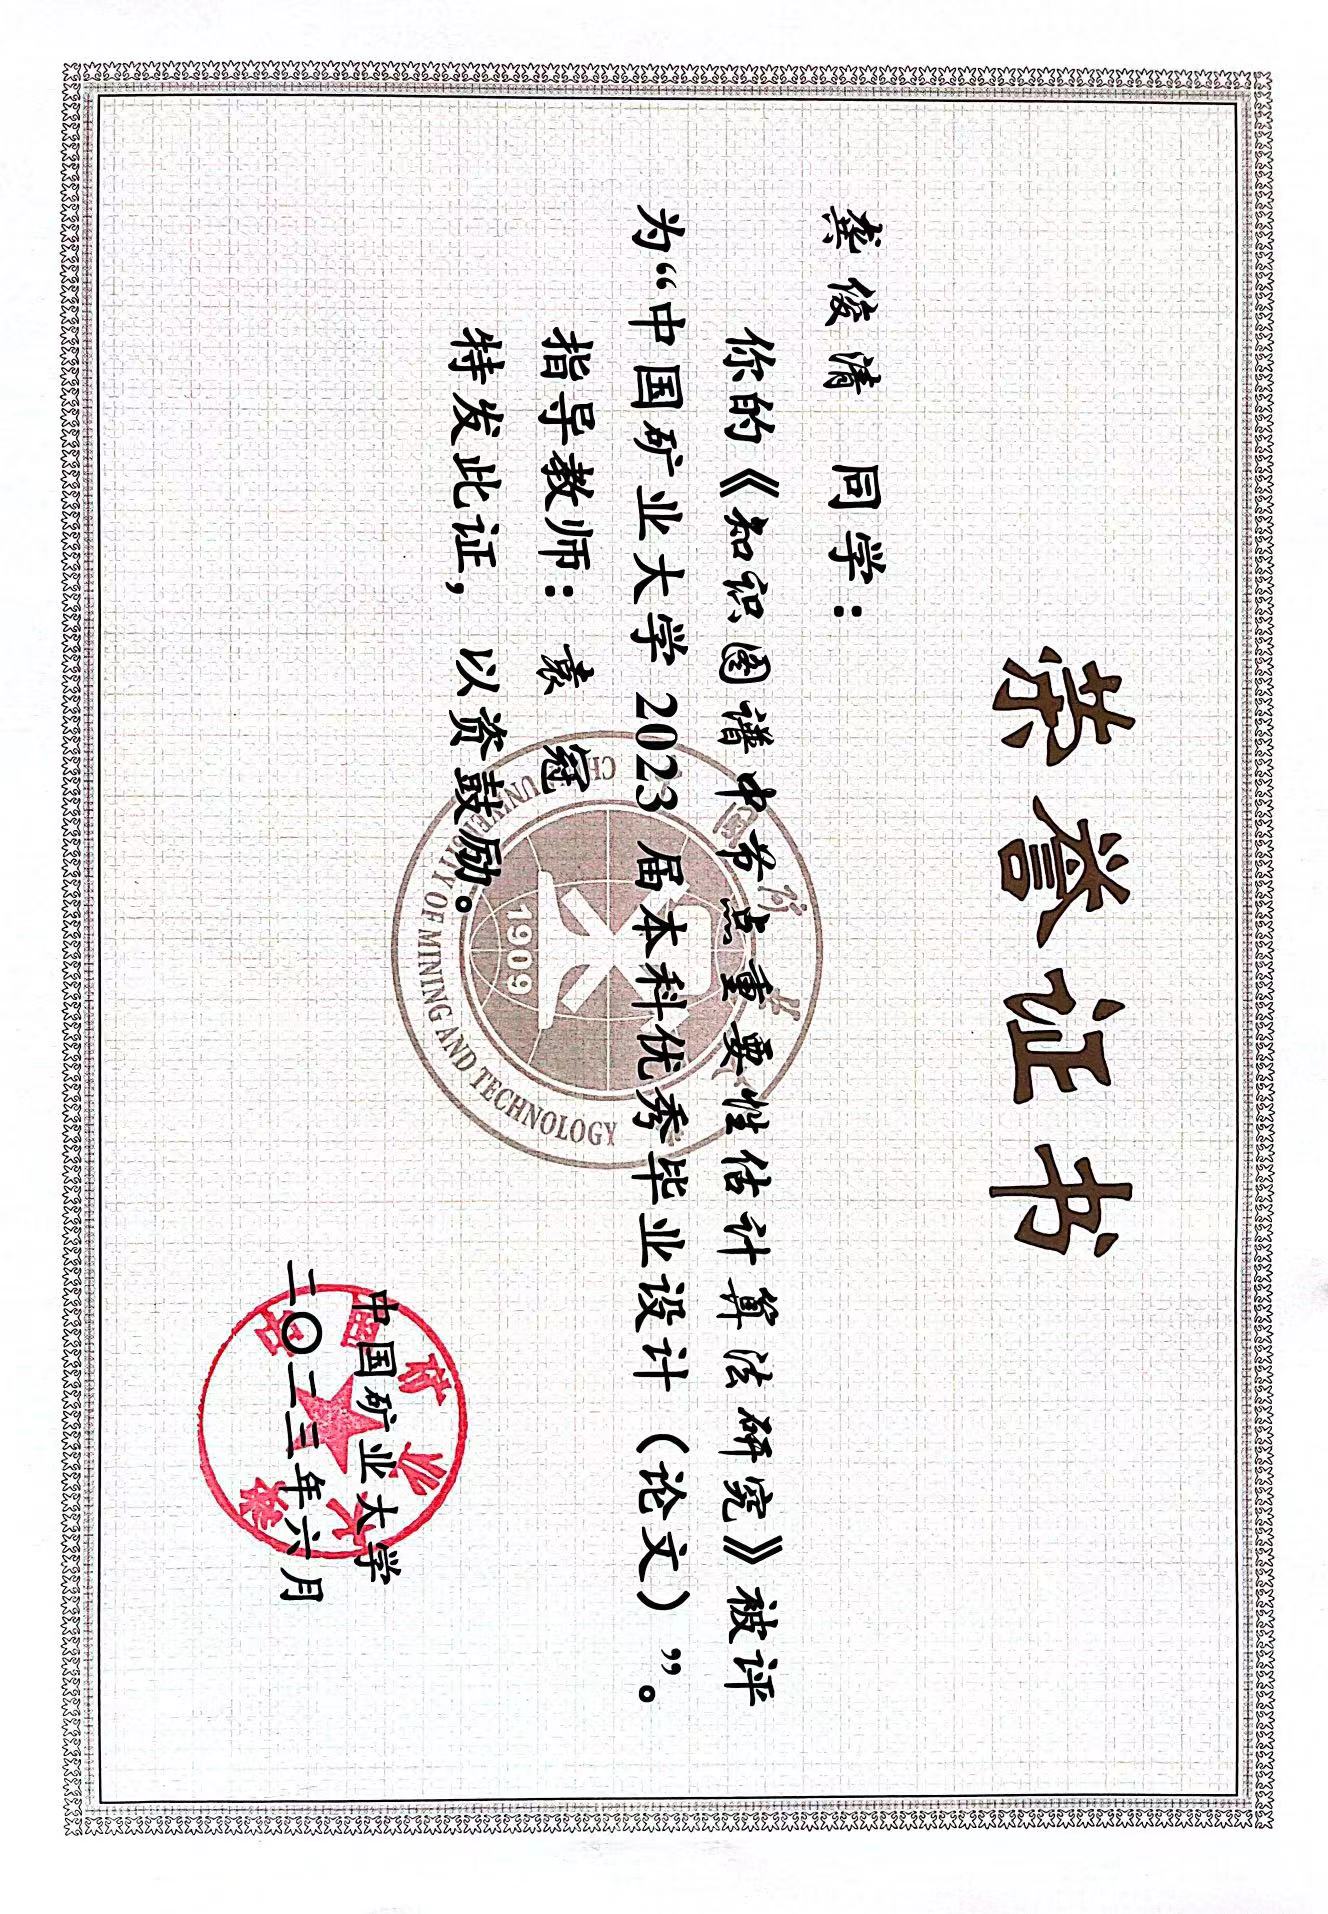 荣誉证书
龚俊清 同学：
你的《知识图谱中节点重要性估计算法研究》被评
为“中国矿业大学 2023 届本科优秀毕业设计（论文）”。
指导教师： 袁 冠
特发此证，以资鼓励。
CHINA UNIVERSITY OF MINING AND TECHNOLOGY
1909
中国矿业大学
二〇二三年六月